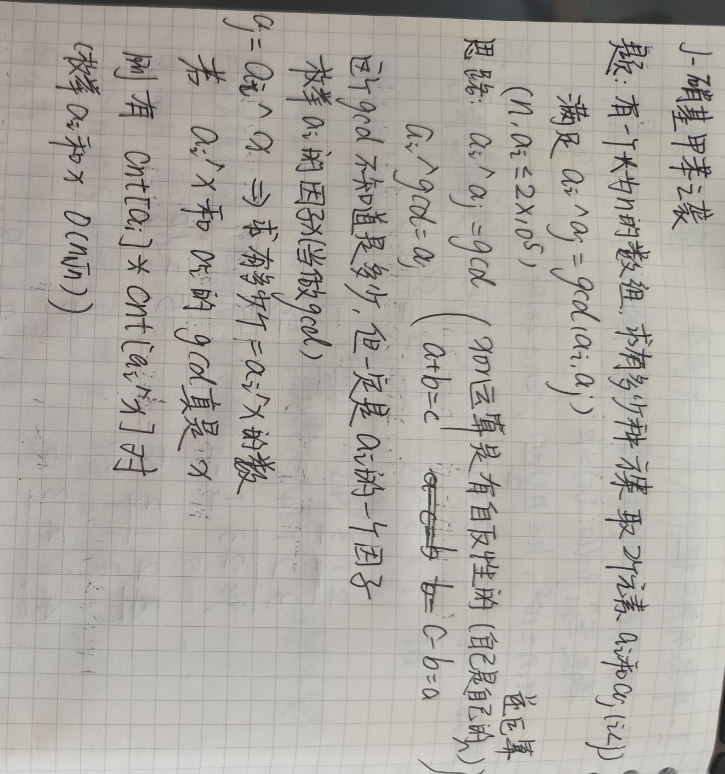 J-硝基甲苯之袭
题：有一个长为n的数组，求有多少种方案 取2个元素 ai和aj (i<j)
满足 ai^aj = gcd(ai,aj)
(n, ai ≤ 2×10⁵)
思路：ai^aj = gcd (xor运算是有自反性的 (自己是自己的逆运算))
ai^gcd = aj ( a+b=c b= c-b=a )
这个gcd 不知道是多少，但一定是ai的一个因子
枚举ai的因子x(当做gcd)
aj = ai^x ⇒ 求有多少个 = ai^x 的数
若 ai^x 和 ai 的 gcd 真是 x
则有 cnt[ai] * cnt[ai^x] 对
(枚举ai和x O(n√n))